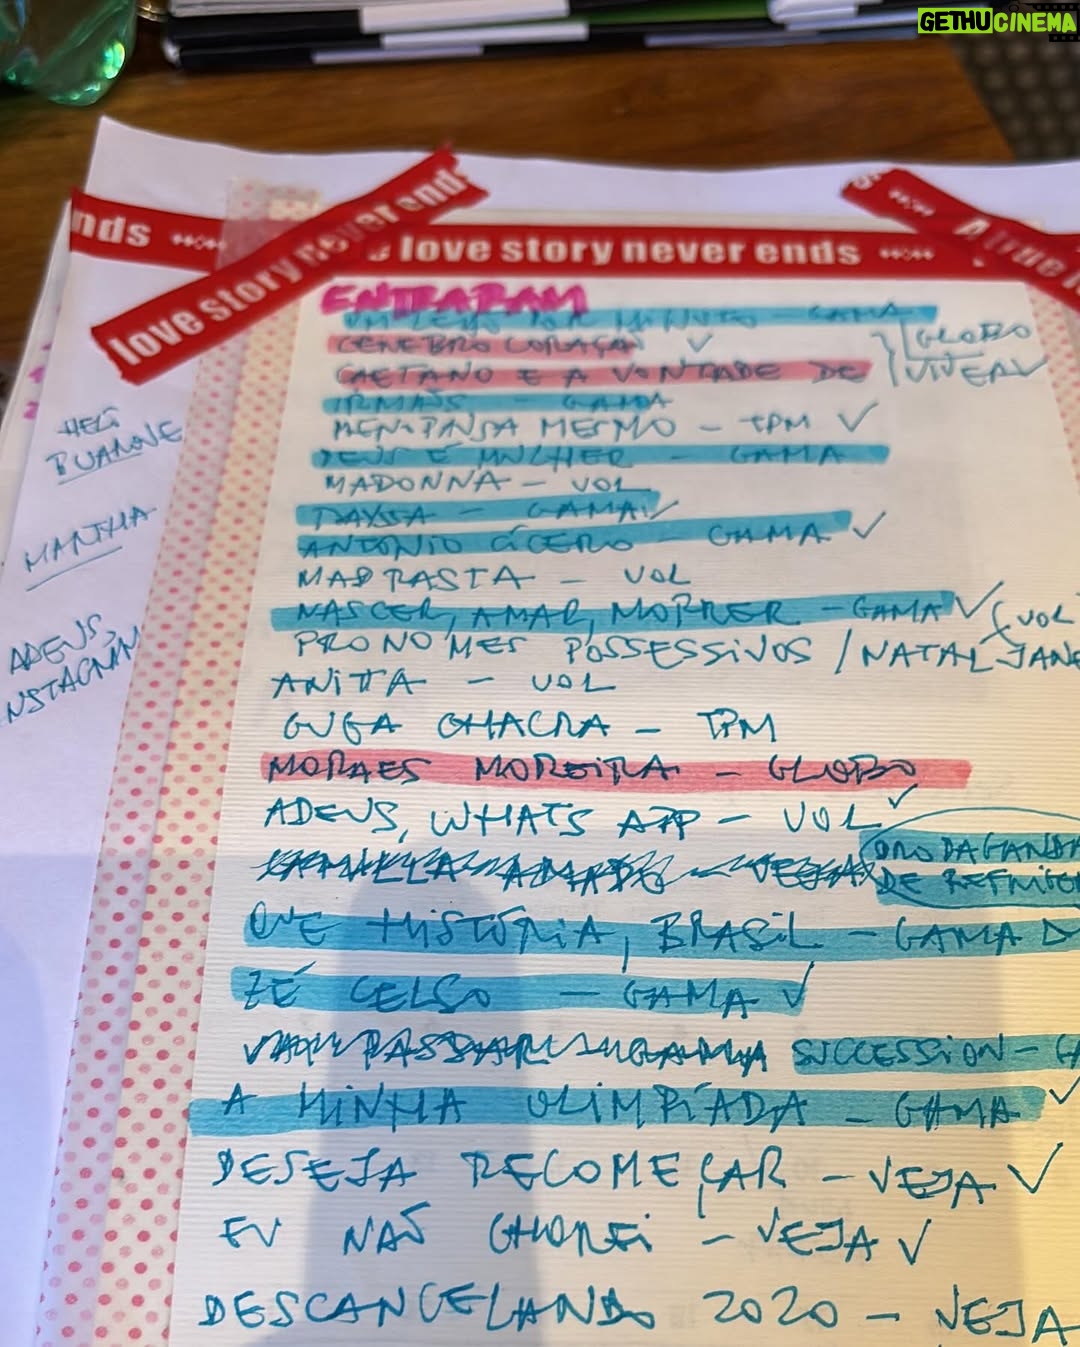 GETHUCINEMA
love story never ends
nds
love story never ends
A true l
ENTRARAM
UM LEÃO POR MINUTO - GAMA
CÉREBRO CORAÇÃO ✓
GLOBO
CAETANO E A VONTADE DE
VIVER ✓
IRMÃOS - GAMA
MENOPAUSA MESMO - TPM ✓
DEUS É MULHER - GAMA
MADONNA - UOL
RAYSSA - GAMA ✓
ANTONIO CÍCERO - GAMA ✓
MADRASTA - UOL
NASCER, AMAR, MORRER - GAMA ✓ (UOL
PRONOMES POSSESSIVOS / NATAL JANE
ANITTA - UOL
GUGA CHACRA - TPM
MORAES MOREIRA - GLOBO
ADEUS, WHATSAPP - UOL ✓
PROPAGANDA
DE REFRIGER
QUE HISTÓRIA, BRASIL - GAMA
ZÉ CELSO - GAMA ✓
SUCCESSION - GA
A MINHA OLIMPÍADA - GAMA ✓
DESEJA RECOMEÇAR - VEJA ✓
EU NÃO CHOREI - VEJA ✓
DESCANCELANDO 2020 - VEJA
MARTHA
ADEUS,
INSTAGRAM